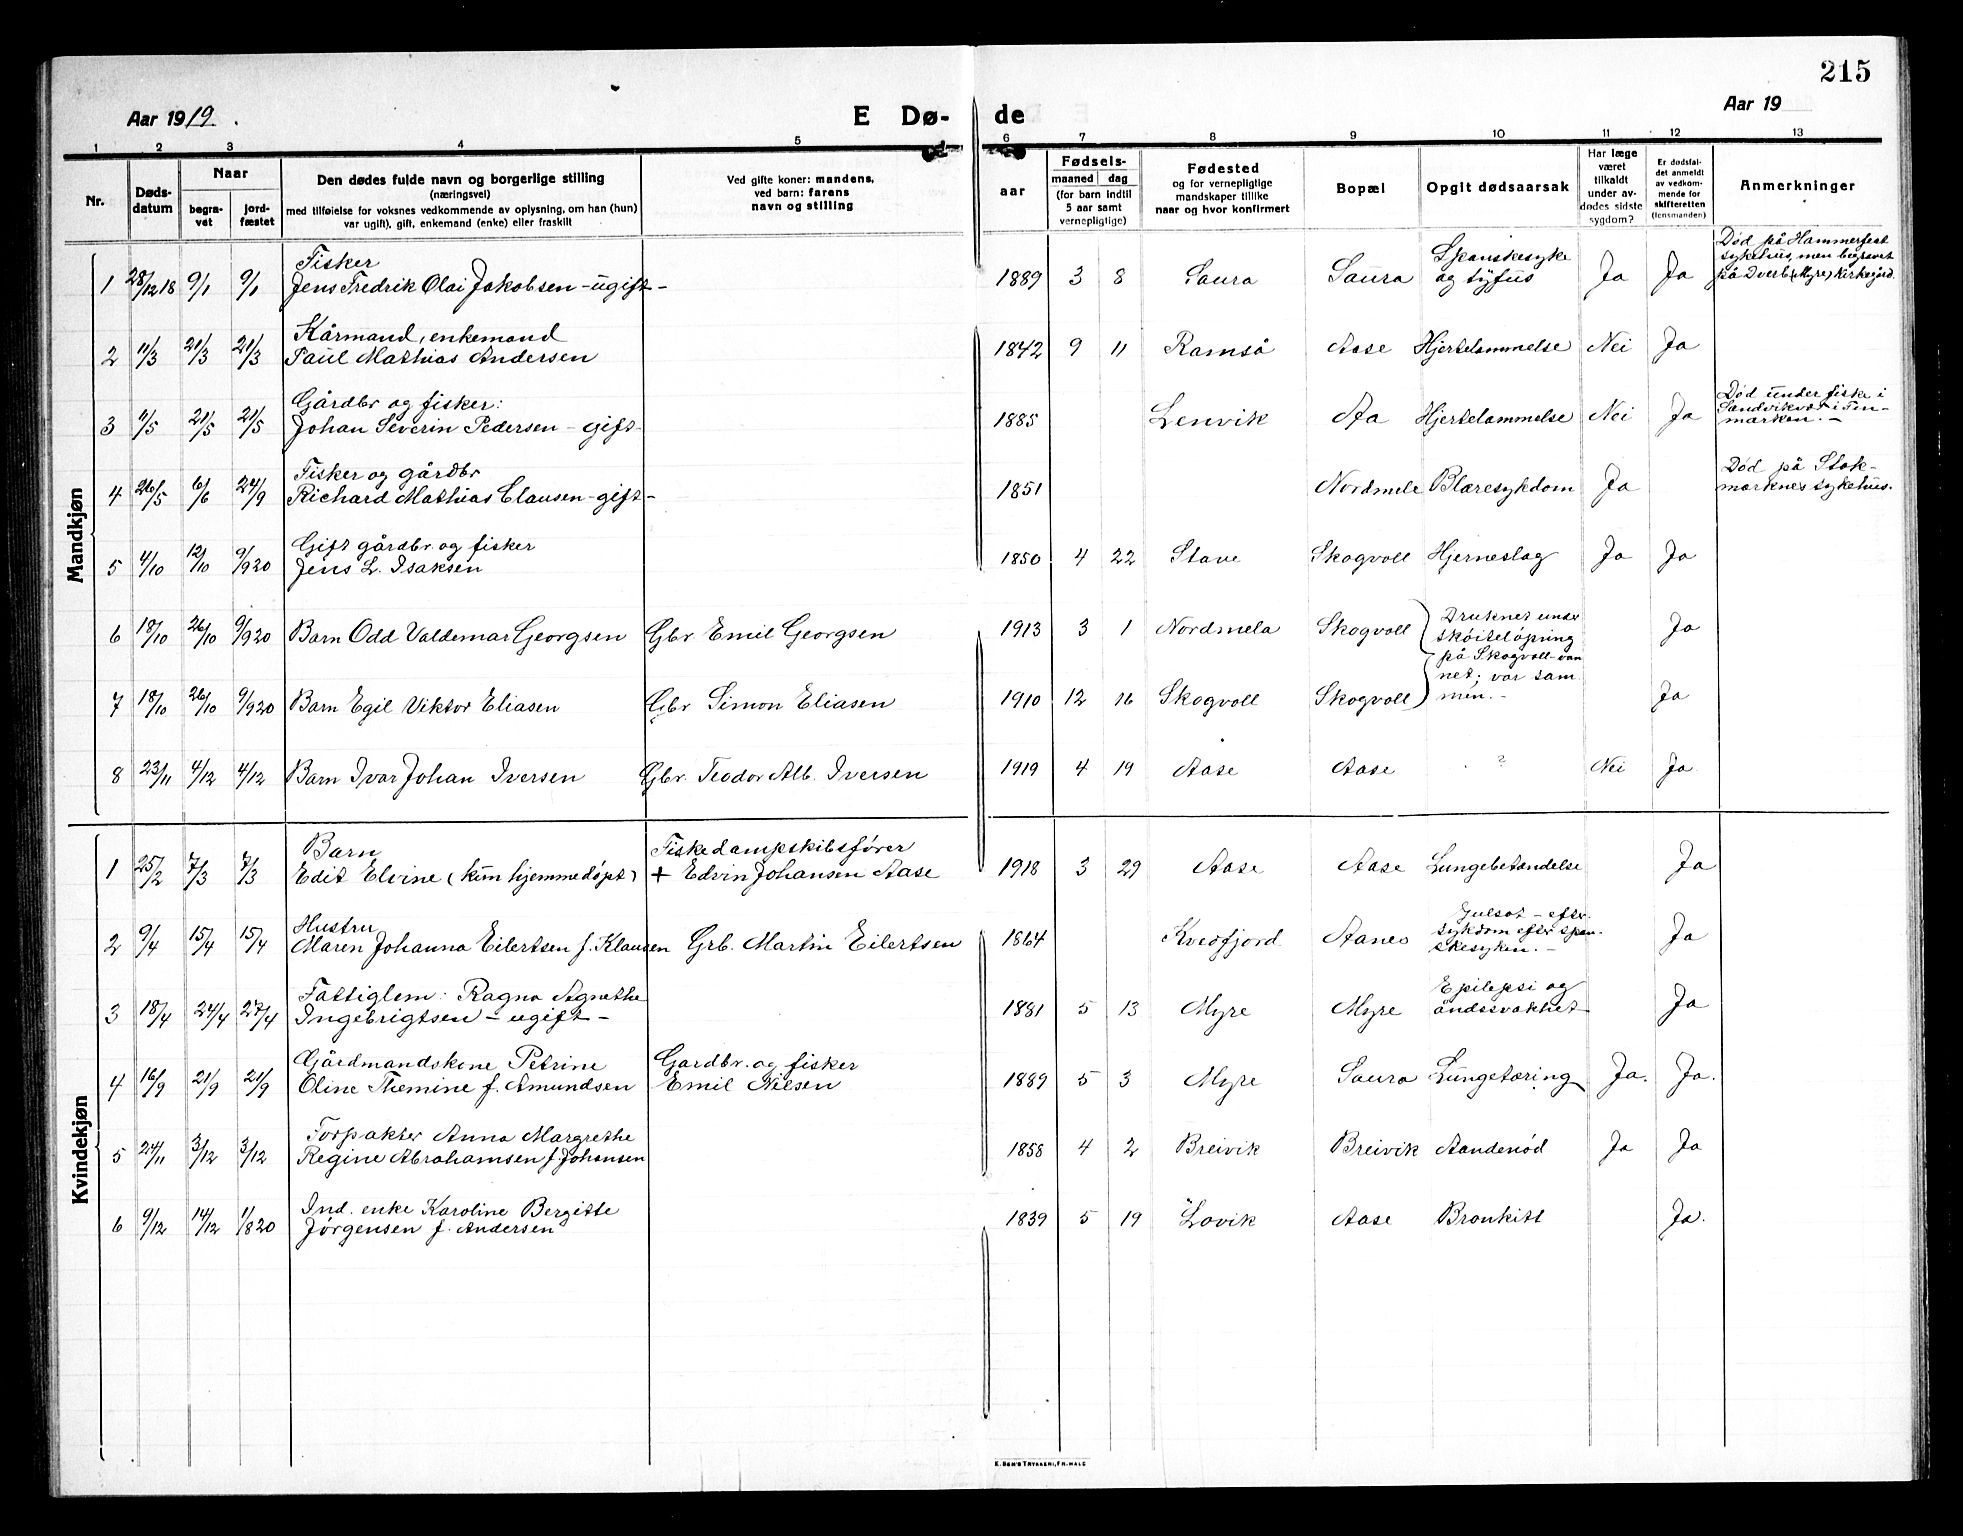 215
Aar 1919.
E Dø-
de
Aar 19
1 2 3 4 5 6 7 8 9 10 11 12 13
Nr.
Døds-
datum
Naar
begra-
vet
jord-
fæstet
Den dødes fulde navn og borgerlige stilling
(næringsvei)
med tilføielse for voksnes vedkommende av oplysning, om han (hun)
var ugift, gift, enkemand (enke) eller fraskilt
Ved gifte koner: mandens,
ved barn: farens
navn og stilling
Fødsels-
aar
maaned dag
(for barn indtil
5 aar samt
vernepligtige)
Fødested
og for vernepligtige
mandskaper tillike
naar og hvor konfirmert
Bopæl
Opgit dødsaarsak
Har læge
været
tilkaldt
under av-
dødes sidste
sygdom?
Er dødsfal-
det anmeldt
av vedkom-
mende for
skifteretten
(lensmanden)
Anmerkninger
Mandkjøn
Fisker
1 28/12 18 9/1 9/1 Jens Fredrik Olai Jakobsen - ugift - 1889 3 8 Saura Saura Spanskesyke og tyfus Ja Ja Død på Hammerfest
sykehus, men begravet
på Dverb. (Myre) kirkegård.
Kårmand, enkemand
2 11/3 21/3 21/3 Paul Mathias Andersen 1842 9 11 Ramså Aase Hjertelammelse Nei Ja
Gårdbr og fisker:
3 11/5 21/5 21/5 Johan Severin Pedersen - gift - 1885 Lenvik Aa Hjertelammelse Nei Ja Død under fiske i
Sandvikvær i Fin-
marken. -
Fisker og gårdbr
4 26/5 6/6 24/9 Richard Mathias Clausen - gift - 1851 Nordmele Blæresykdom Ja Død på Stok-
marknes sykehus.
Gift gårdbr. og fisker
5 4/10 12/10 9/9 20 Jens L. Isaksen 1850 4 22 Stave Skogvoll Hjerneslag Ja Ja
6 18/10 26/10 9/9 20 Barn Odd Valdemar Georgsen Gbr Emil Georgsen 1913 3 1 Nordmela Skogvoll Druknet under
skøiteløpning
på Skogvoll-van
net; var sam
men. - Ja
7 18/10 26/10 9/9 20 Barn Egil Viktor Eliasen Gbr Simon Eliasen 1910 12 16 Skogvoll Skogvoll Ja
8 23/11 4/12 4/12 Barn Ivar Johan Iversen Gbr. Teodor Alb. Iversen 1919 4 19 Aase Aase ? Nei Ja
Kvindekjøn
Barn Fiskedampskibsfører
1 25/2 7/3 7/3 Edit Elvine (kun hjemmedøpt) + Edvin Johansen Aase 1918 3 29 Aase Aase Lungebetændelse Ja
Hustru
2 9/4 15/4 15/4 Maren Johanna Eilertsen f. Klausen Grb. Martin Eilertsen 1864 Kvedfjord Aanes Gulsot - eftr.
sykdom efter span-
skesyken. - Ja
Fattiglem: Ragna Agnethe
3 18/4 24/4 27/4 Ingebrigtsen - ugift - 1881 5 13 Myre Myre Epilepsi og
åndssvakhet Ja
Gårdmandskone Petrine Gardbr. og fisker
4 16/9 21/9 21/9 Oline Themine f. Amundsen Emil Nilsen 1889 5 3 Myre Saura Lungetæring Ja. Ja.
Forpakter Anna Margrethe
5 24/11 3/12 3/12 Regine Abrahamsen f. Johansen 1858 4 2 Breivik Breivik Aandenød Ja Ja
Ind. enke Karoline Bergitte
6 9/12 14/12 1/8 20 Jørgensen f. Andersen 1839 5 19 Lovik Aase Bronkitt Ja.
E. SEM'S TRYKKERI, FR.HALD